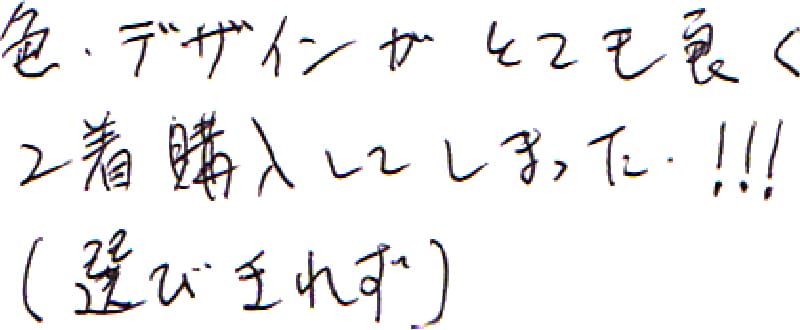 色・デザインがとても良く
2着購入してしまった.!!!
(選びきれず)